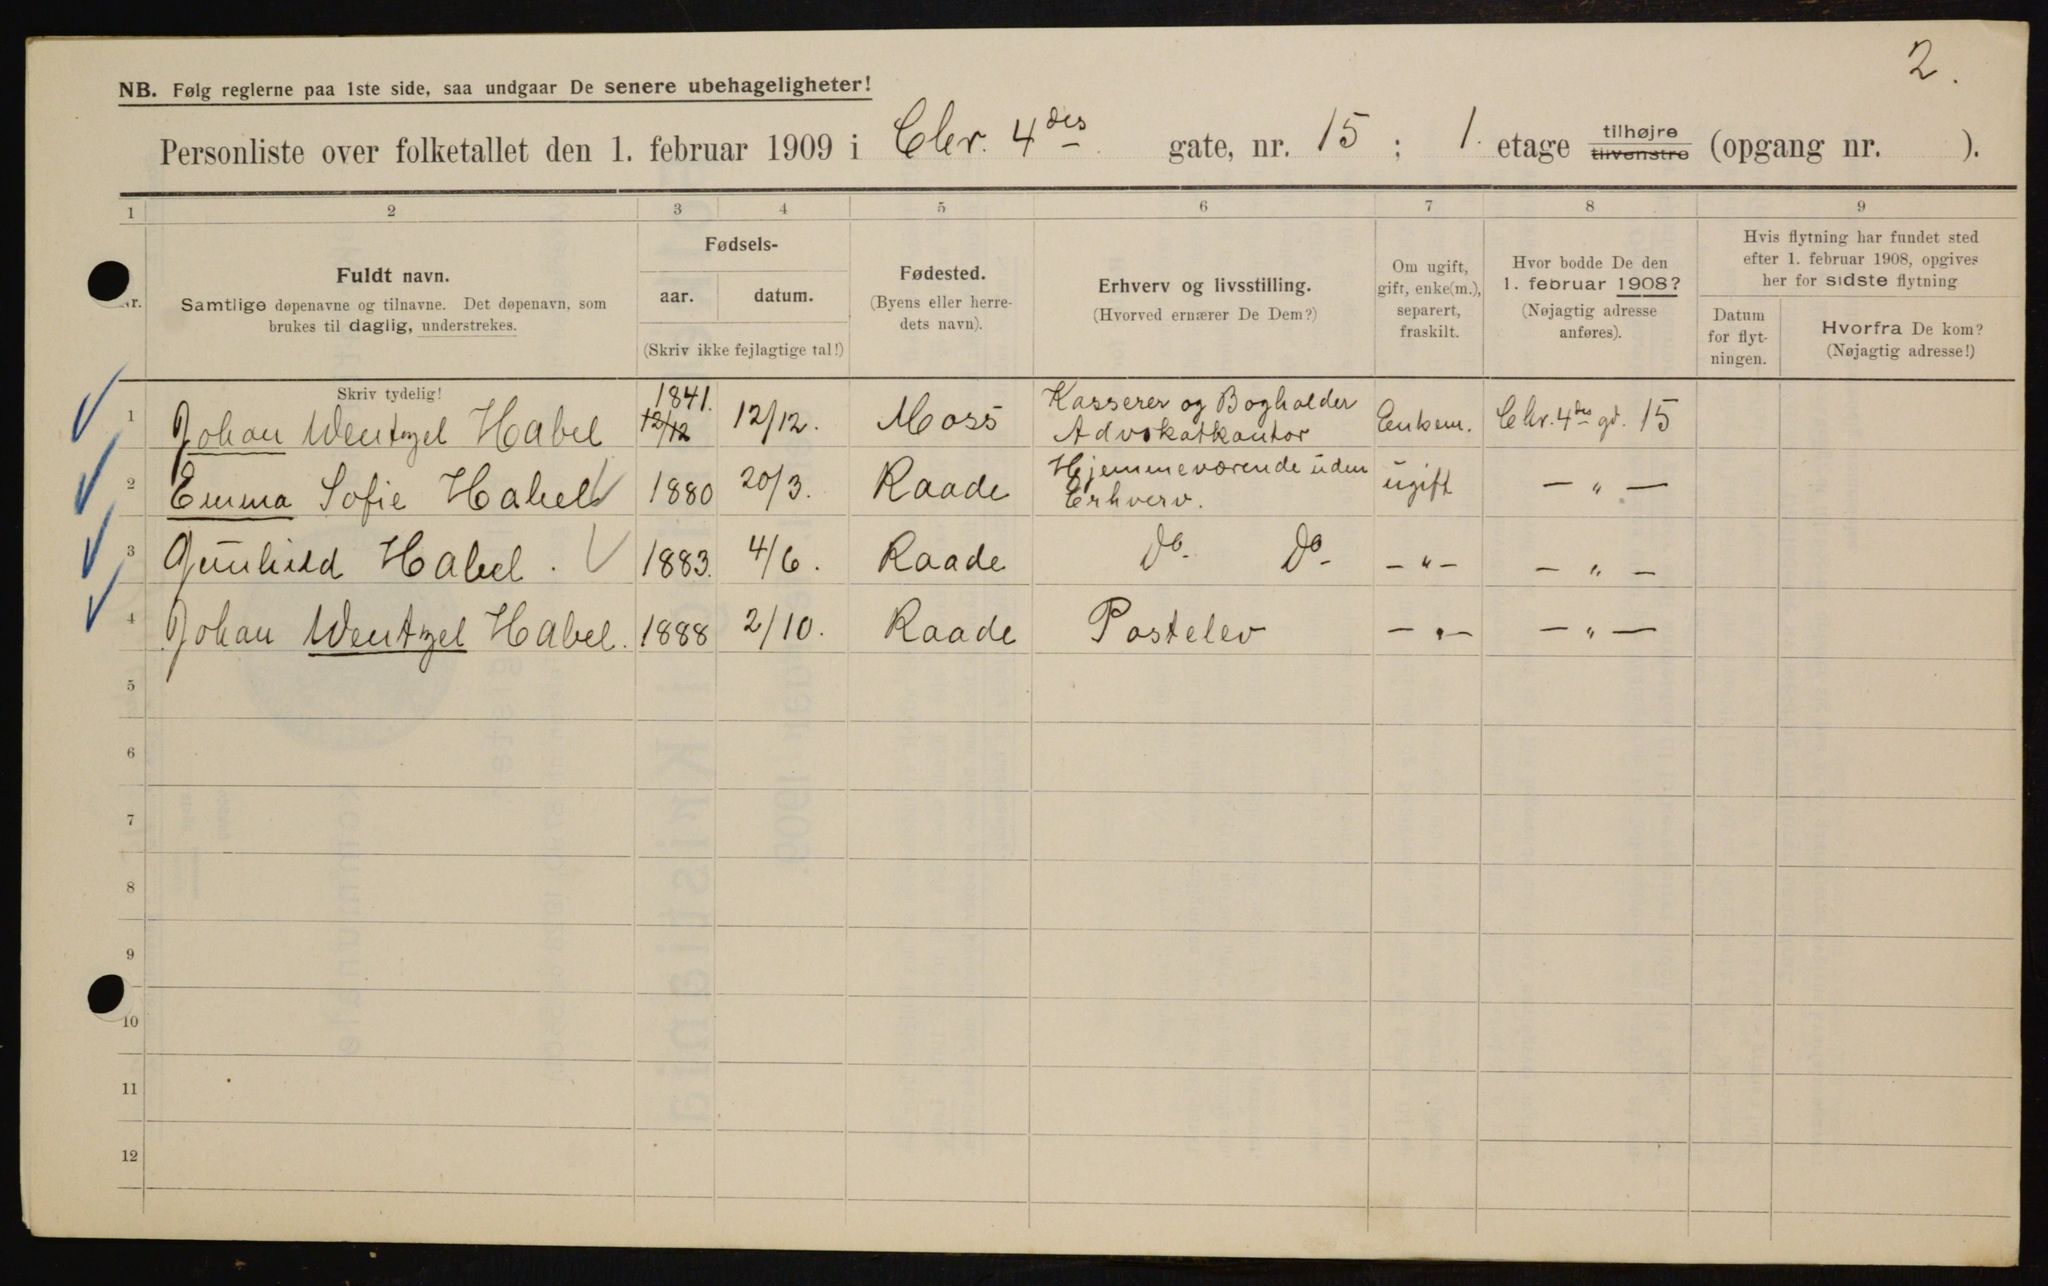 2.
NB. Følg reglerne paa 1ste side, saa undgaar De senere ubehageligheter!
Personliste over folketallet den 1. februar 1909 i Chr. 4des gate, nr. 15 ; 1. etage tilhøjre tilvenstre (opgang nr. ).
1 2 3 4 5 6 7 8 9
Nr.
Fuldt navn.
Samtlige døpenavne og tilnavne. Det døpenavn, som
brukes til daglig, understrekes.
Fødsels-
aar. datum.
(Skriv ikke fejlagtige tal!)
Fødested.
(Byens eller herre-
dets navn).
Erhverv og livsstilling.
(Hvorved ernærer De Dem?)
Om ugift,
gift, enke(m.),
separert,
fraskilt.
Hvor bodde De den
1. februar 1908?
(Nøjagtig adresse
anføres).
Hvis flytning har fundet sted
efter 1. februar 1908, opgives
her for sidste flytning
Datum
for flyt-
ningen.
Hvorfra De kom?
(Nøjagtig adresse!)
Skriv tydelig!
1 Johan Wentzel Habel 1841. 12/12 12/12. Moss Kasserer og Bogholder Advokatkontor Enkem. Chr. 4des gd. 15
2 Emma Sofie Habel 1880 20/3. Raade Hjemmeværende uden Erhverv. ugift — " —
3 Gunhild Habel. 1883. 4/6. Raade Do. Do. — " — — " —
4 Johan Wentzel Habel. 1888 2/10. Raade Postelev — " — — " —
5
6
7
8
9
10
11
12